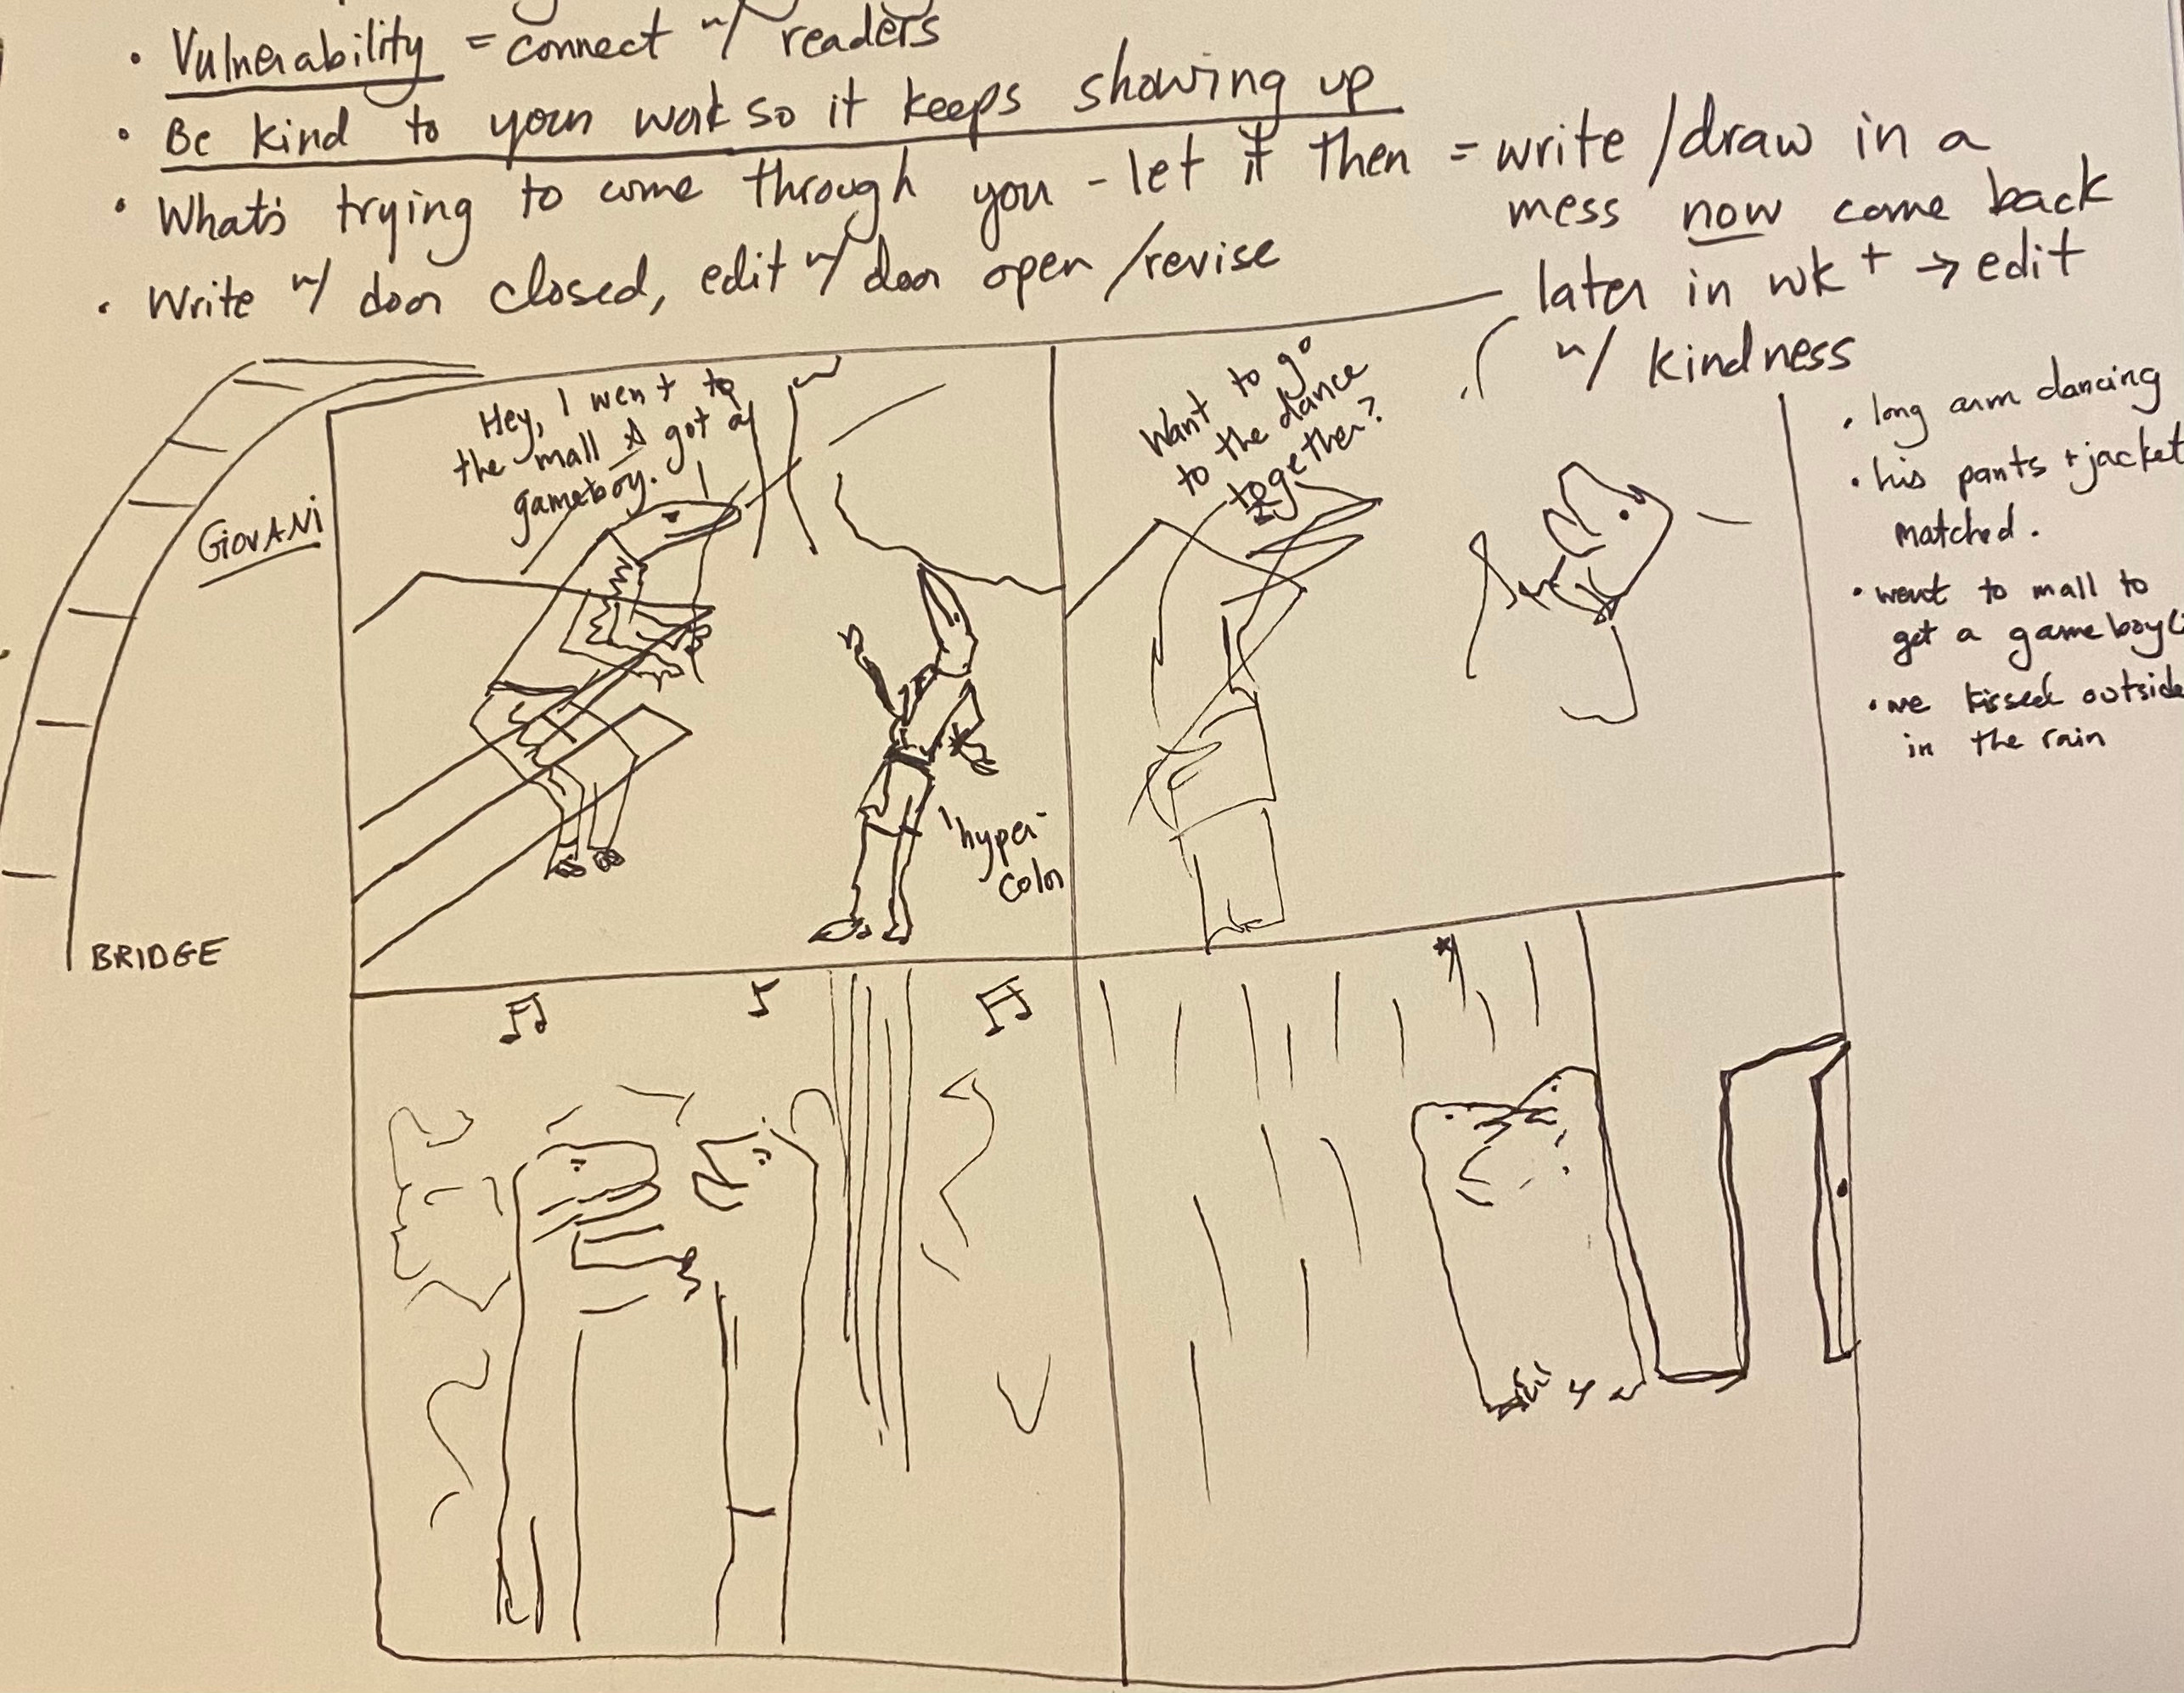 • Vulnerability = connect w/ readers
• Be kind to your work so it keeps showing up
• What's trying to come through you - let it then = write /draw in a
mess now come back
later in wk + → edit
w/ kindness
• Write w/ door closed, edit w/ door open /revise
Hey, I went to
the mall & got a
gameboy.
Want to go
to the dance
together?
GIOVANI
BRIDGE
'hyper-
color
• long arm dancing
• his pants + jacket
matched.
• went to mall to
get a gameboy
• we kissed outside
in the rain